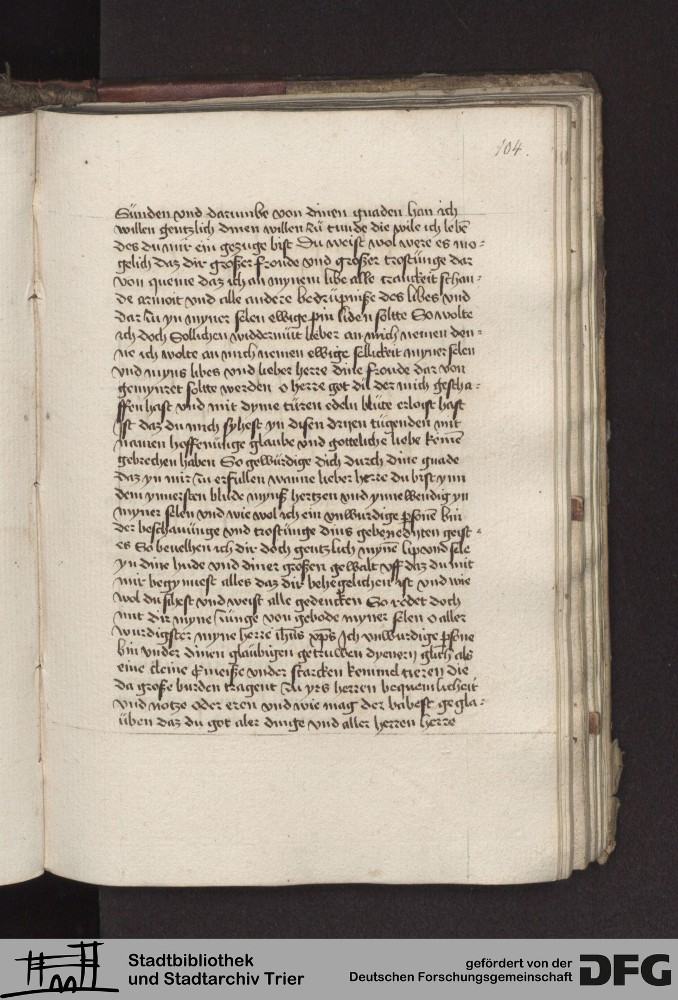 104.
Sünden vnd darumbe von dinen gnaden han ich
willen gentzlich dinen willen zü tunde die wile ich lebē
des du mir ein gezuge bist Du weist wol were es mo=
gelich daz dir großer froude vnd großer trostünge dar
von queme daz ich an mynem libe alle cranckeit schan=
de armoit vnd alle andere bedrüpniße des libes vnd
dar zü yn myner selen ewige pin liden soltte So wolte
ich doch Sollichen widdermüt lieber an mich nemen den=
ne ich wolte an mich nemen ewige sellickeit myner selen
vnd myns libes vnd lieber herre dine froude dar von
gemynret soltte werden o herre got dil der mich gescha=
ffen hast vnd mit dyme türen edeln blüte erloist hast
Ist daz du mich syhest yn disen dryen tügenden mit
namen hoffenünge glaube vnd gotteliche liebe keinē
gebrechen haben So gewürdige dich durch dine gnade
daz yn mir zü erfullen wanne lieber herre du bist ynn
dem ynnersten myns hertzen vnd ynnewendig yn
myner selen vnd wie wol ich ein vnwurdige psone bin
der beschauünge vnd trostünge dins gebenedyten geist=
es So beuelhen ich dir doch gentzlich mynē lip vnd sele
yn dine hude vnd diner großen gewalt vff daz du mit
mir begynnest alles daz dir behegelichen ist vnd wie
wol du sihest vnd weist alle gedencken So redet doch
mit dir myne zünge von gebode myner selen o aller
wurdigster myne herre ihūs xps Ich vnwurdige psone
bin vnder dinen glaubigen getruwen dyenern glich als
eine cleine omeiße vnder starcken kemmel tieren die
da große burden tragent zü yrs herren bequemlicheit
vnd notze oder eren vnd wie mag der babest gegla=
üben daz du got aler dinge vnd aller herren herre
Stadtbibliothek
und Stadtarchiv Trier
gefördert von der
Deutschen Forschungsgemeinschaft
DFG